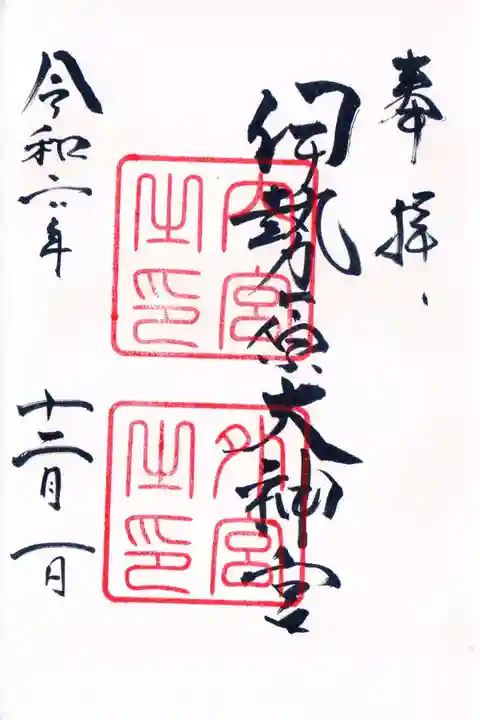 奉拝
伊勢原大神宮
内宮之印
外宮之印
令和六年
十二月一日